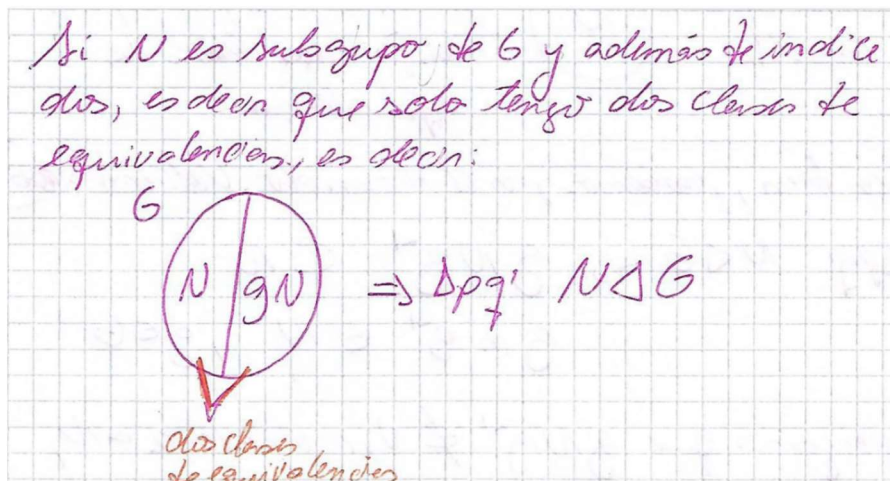 Si N es subgupo de G y además de indice
dos, es decir que solo tengo dos clases de
equivalencias, es decir:
G
N gN => Dpq' N△G
dos clases
de equivalencias